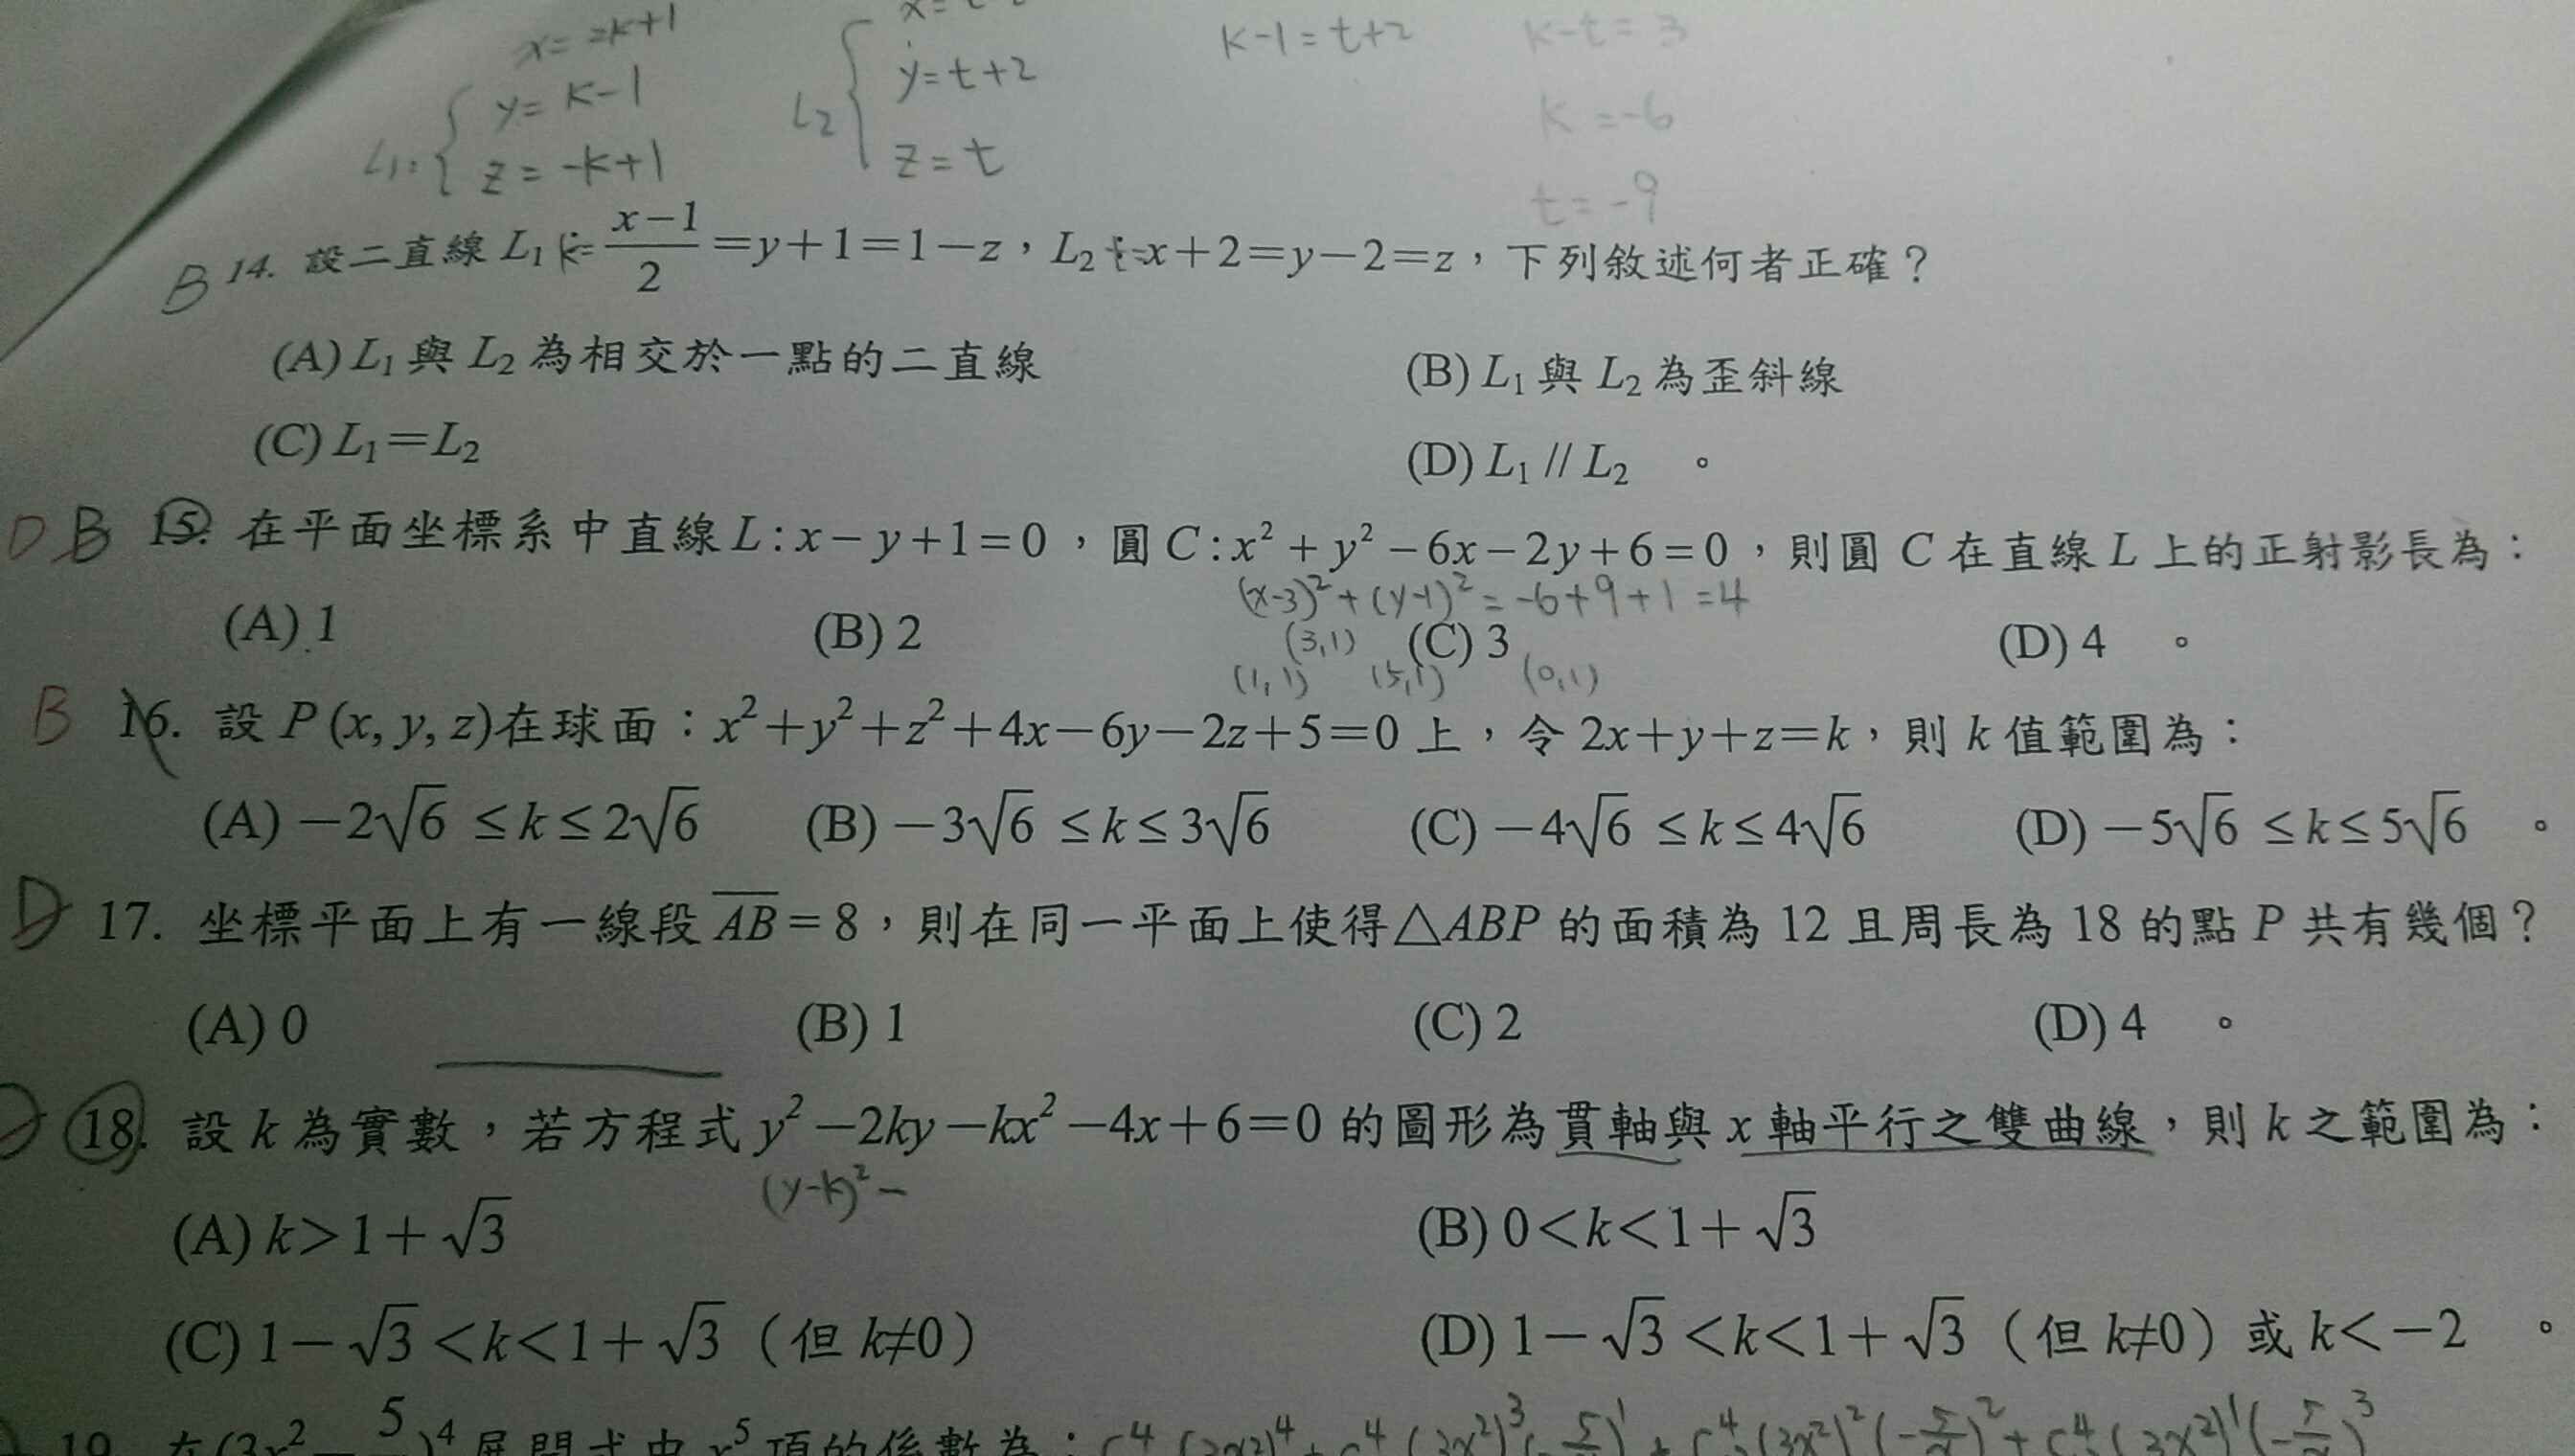 x= 2k+1
y= k-1
L1: z= -k+1
L2
y=t+2
z=t
k-1=t+2
k-t=3
k=-6
t=-9
B 14. 設二直線 L₁：k= \frac{x-1}{2}=y+1=1-z，L₂：t=x+2=y-2=z，下列敘述何者正確？
(A) L₁ 與 L₂ 為相交於一點的二直線 (B) L₁ 與 L₂ 為歪斜線
(C) L₁=L₂ (D) L₁ // L₂ 。
D B 15. 在平面坐標系中直線 L:x-y+1=0，圓 C:x²+y²-6x-2y+6=0，則圓 C 在直線 L 上的正射影長為：
(x-3)²+(y-1)²=-6+9+1=4
(A) 1 (B) 2 (3,1) (C) 3 (D) 4 。
(1,1) (5,1) (0,1)
B 16. 設 P(x, y, z)在球面：x²+y²+z²+4x-6y-2z+5=0 上，令 2x+y+z=k，則 k 值範圍為：
(A) -2√6 ≤k≤2√6 (B) -3√6 ≤k≤3√6 (C) -4√6 ≤k≤4√6 (D) -5√6 ≤k≤5√6 。
D 17. 坐標平面上有一線段 \overline{AB}=8，則在同一平面上使得△ABP 的面積為 12 且周長為 18 的點 P 共有幾個？
(A) 0 (B) 1 (C) 2 (D) 4 。
18. 設 k 為實數，若方程式 y²-2ky-kx²-4x+6=0 的圖形為貫軸與 x 軸平行之雙曲線，則 k 之範圍為：
(y-k)²-
(A) k>1+√3 (B) 0<k<1+√3
(C) 1-√3<k<1+√3（但 k≠0） (D) 1-√3<k<1+√3（但 k≠0）或 k<-2 。
19. 在(3x²-\frac{5}{ })⁴展開式中 x⁵ 項的係數為：